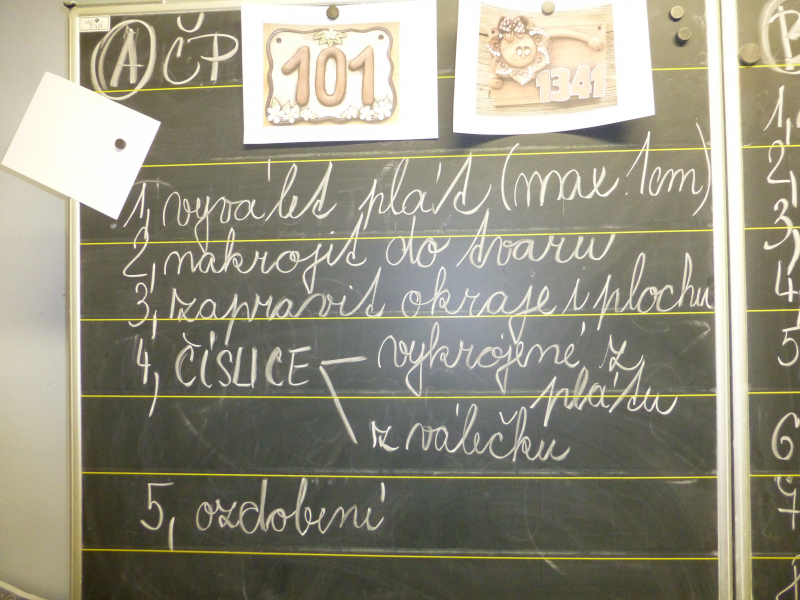 A ČP
101
1341
1, vyválet plát (max. 1cm)
2, nakrojit do tvaru
3, zapravit okraje i plochu
4, ČÍSLICE vykrojené z
plátu
z válečku
5, ozdobení
B
1,
2,
3,
4,
5
6
7